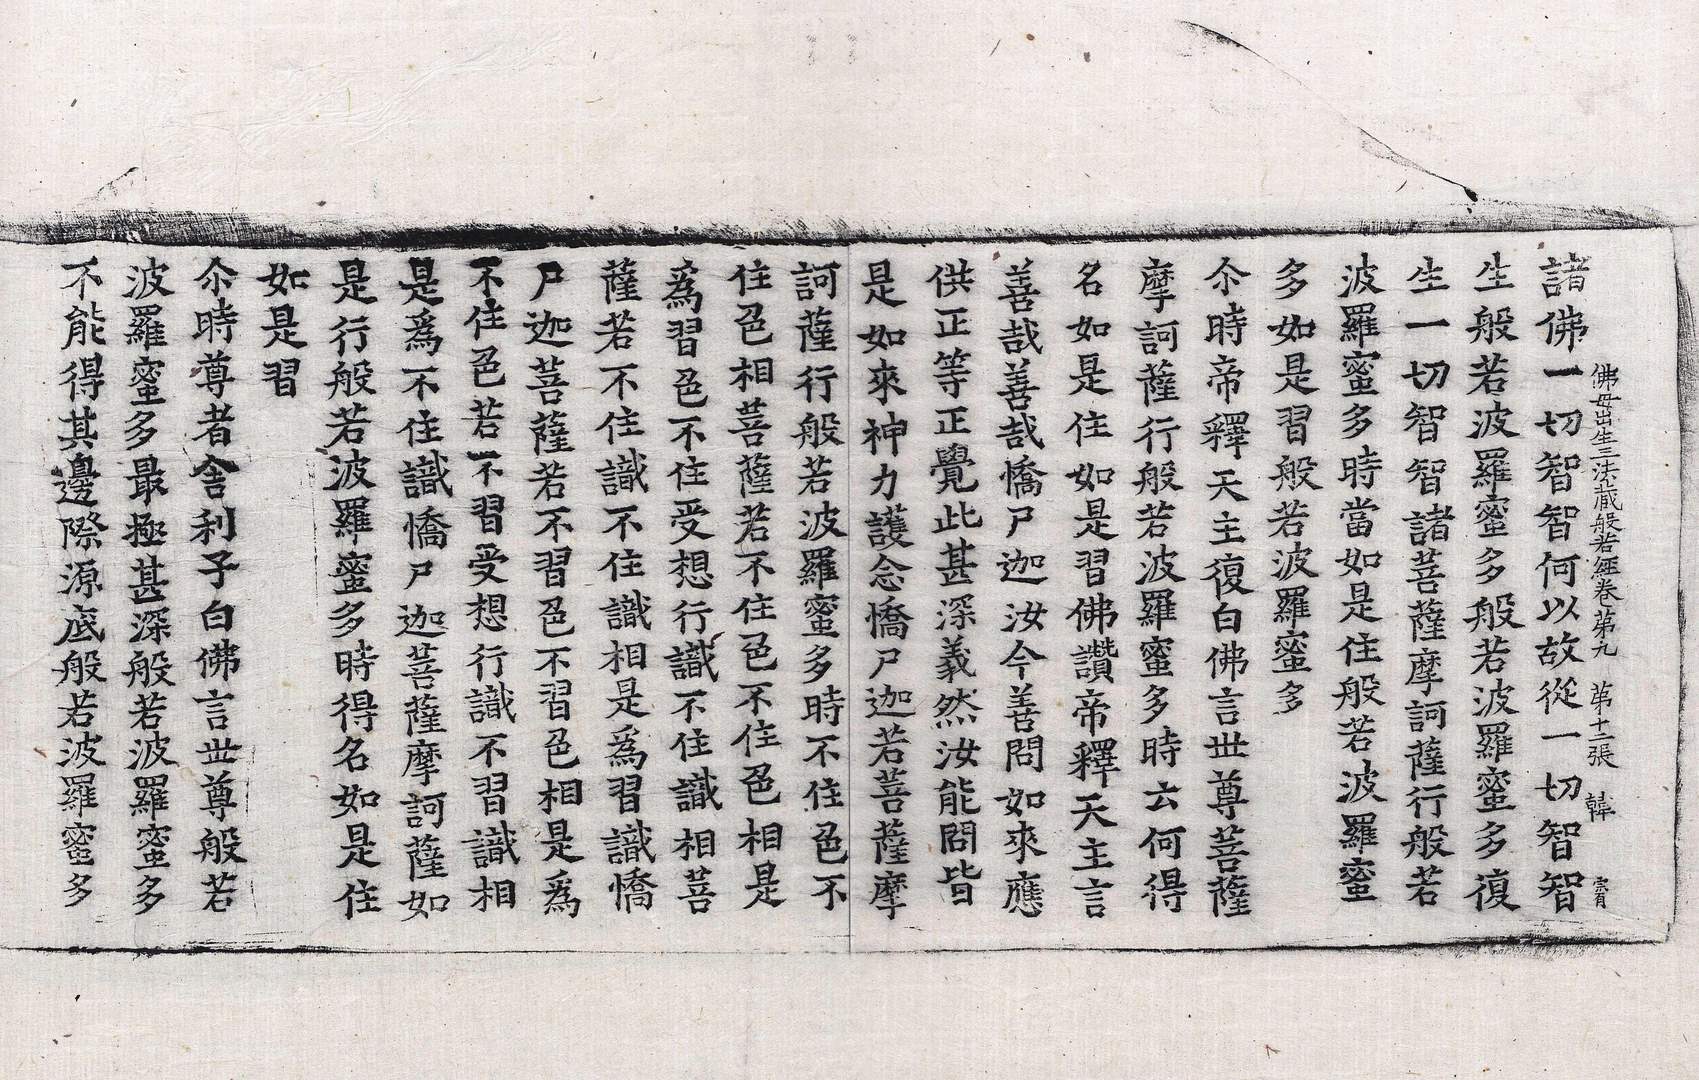 佛母出生三法藏般若經卷第九　第十二張　韓
諸佛一切智智何以故從一切智智
生般若波羅蜜多般若波羅蜜多復
生一切智智諸菩薩摩訶薩行般若
波羅蜜多時當如是住般若波羅蜜
多如是習般若波羅蜜多
尒時帝釋天主復白佛言世尊菩薩
摩訶薩行般若波羅蜜多時云何得
名如是住如是習佛讚帝釋天主言
善哉善哉憍尸迦汝今善問如來應
供正等正覺此甚深義然汝能問皆
是如來神力護念憍尸迦若菩薩摩
訶薩行般若波羅蜜多時不住色不
住色相菩薩若不住色不住色相是
爲習色不住受想行識不住識相菩
薩若不住識不住識相是爲習識憍
尸迦菩薩若不習色不習色相是爲
不住色若不習受想行識不習識相
是爲不住識憍尸迦菩薩摩訶薩如
是行般若波羅蜜多時得名如是住
如是習
尒時尊者舍利子白佛言世尊般若
波羅蜜多最極甚深般若波羅蜜多
不能得其邊際源底般若波羅蜜多